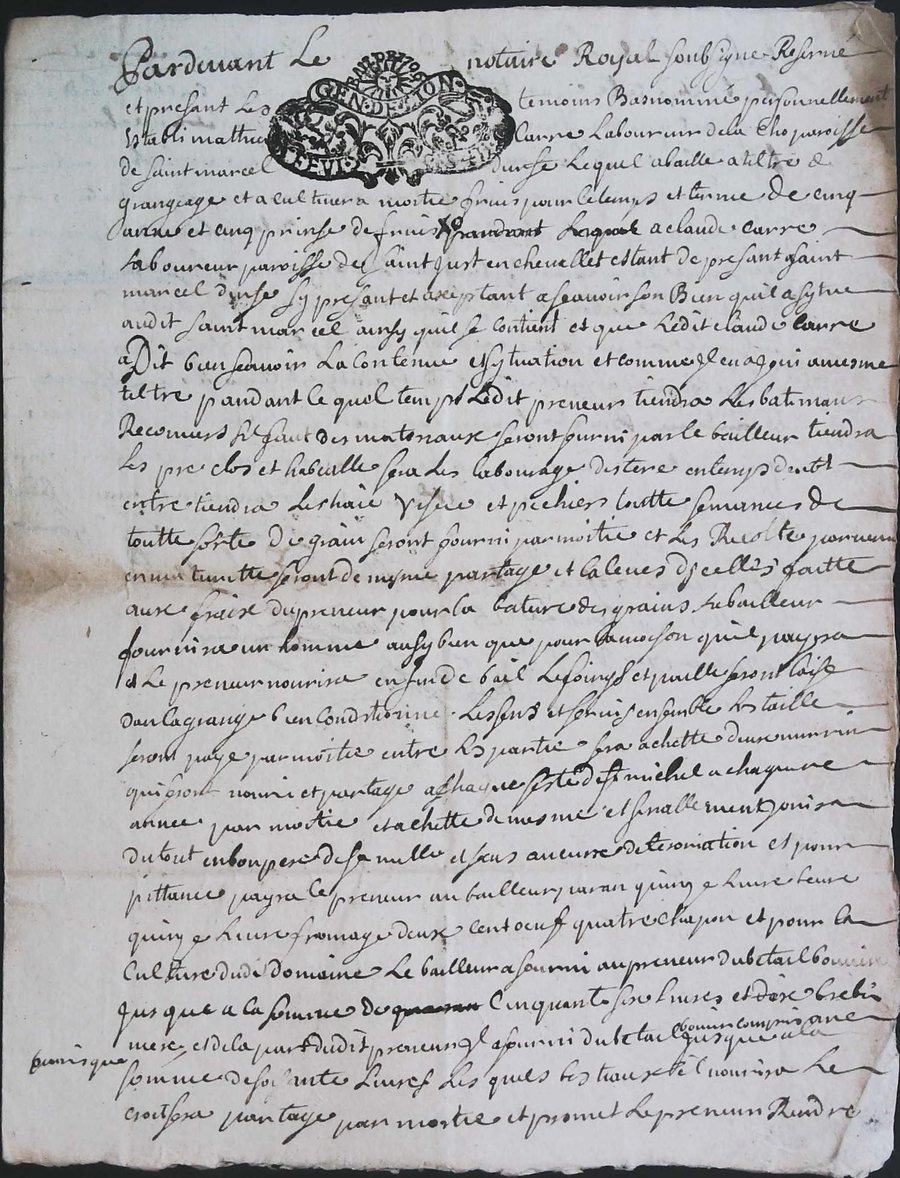 Pardevant Le notaire Royal soubsigne Reserué
et presant Les temoins Basnommé personnellement
Establi mathieu Carre Laboureur de la Cho paroisse
de saint marcel durfe Lequel abaille a tiltre de
grangeage et a cultiuer a moitie fruis pour le temps et terme de cinq
anne et cinq prinse de fruis pandant Lequel a claude carre
Laboureur paroisse de saint Just en cheuallet estant de presant a saint
marcel durfe Sy presant et axeptant a scauoir son Bien quil a sytue
audit saint marcel ainsy quil se contient et que Ledit claude Carre
a Dit bien scauoir La contenue et sytuation et comme Il en a joui au mesme
tiltre pandant le quel temps Ledit preneur tiendra Les batimans
Recouuers sil faut des materiaux seront fourni par le bailleur tiendra
les pre clos et fera Les labourage des tere en temps deub
entretiendra Les haie et pechiers toutte semances de
toutte sorte de grain seront fourni par moitie et Les Recolte paruenu
en maturitte seront de mesme partage et la leues dicelles faitte
aux fraix du preneur pour la bature des grains Le bailleur
fournira un homme ausy bien que pour la moison quil payra
et Le preneur nourira en fin de bail Le foings et paille seront laise
dans la grange bien conditionne Les sens et seruis ensemble Les taille
seront paye par moitie entre Les partie sera achette deux nurrin
qui seront nouri et partage a chaque feste de st michel a chaqune
annee par moitie et achette de mesme et finallement Jouira
du tout en bon pere de famille et sans aucune deterioriation et pour
pittance payra le preneur au bailleur par an quinze Liure beure
quinze Liure fromage deux cent oeuf quatre chapon et pour la
Culture dudi Domaine Le bailleur a fourni au preneur du betail bouuin
Jusque a la somme de Cinquante six Liures et dix brebis
mere, et de la part dudit preneur Il a fourni du betail bouuin compris ane
Jusque a la
somme de soisante Liures Les quels bestiaux Il nourira Le
croit sera partage par moitie et promet Le preneur Rendre
GEN DE LION